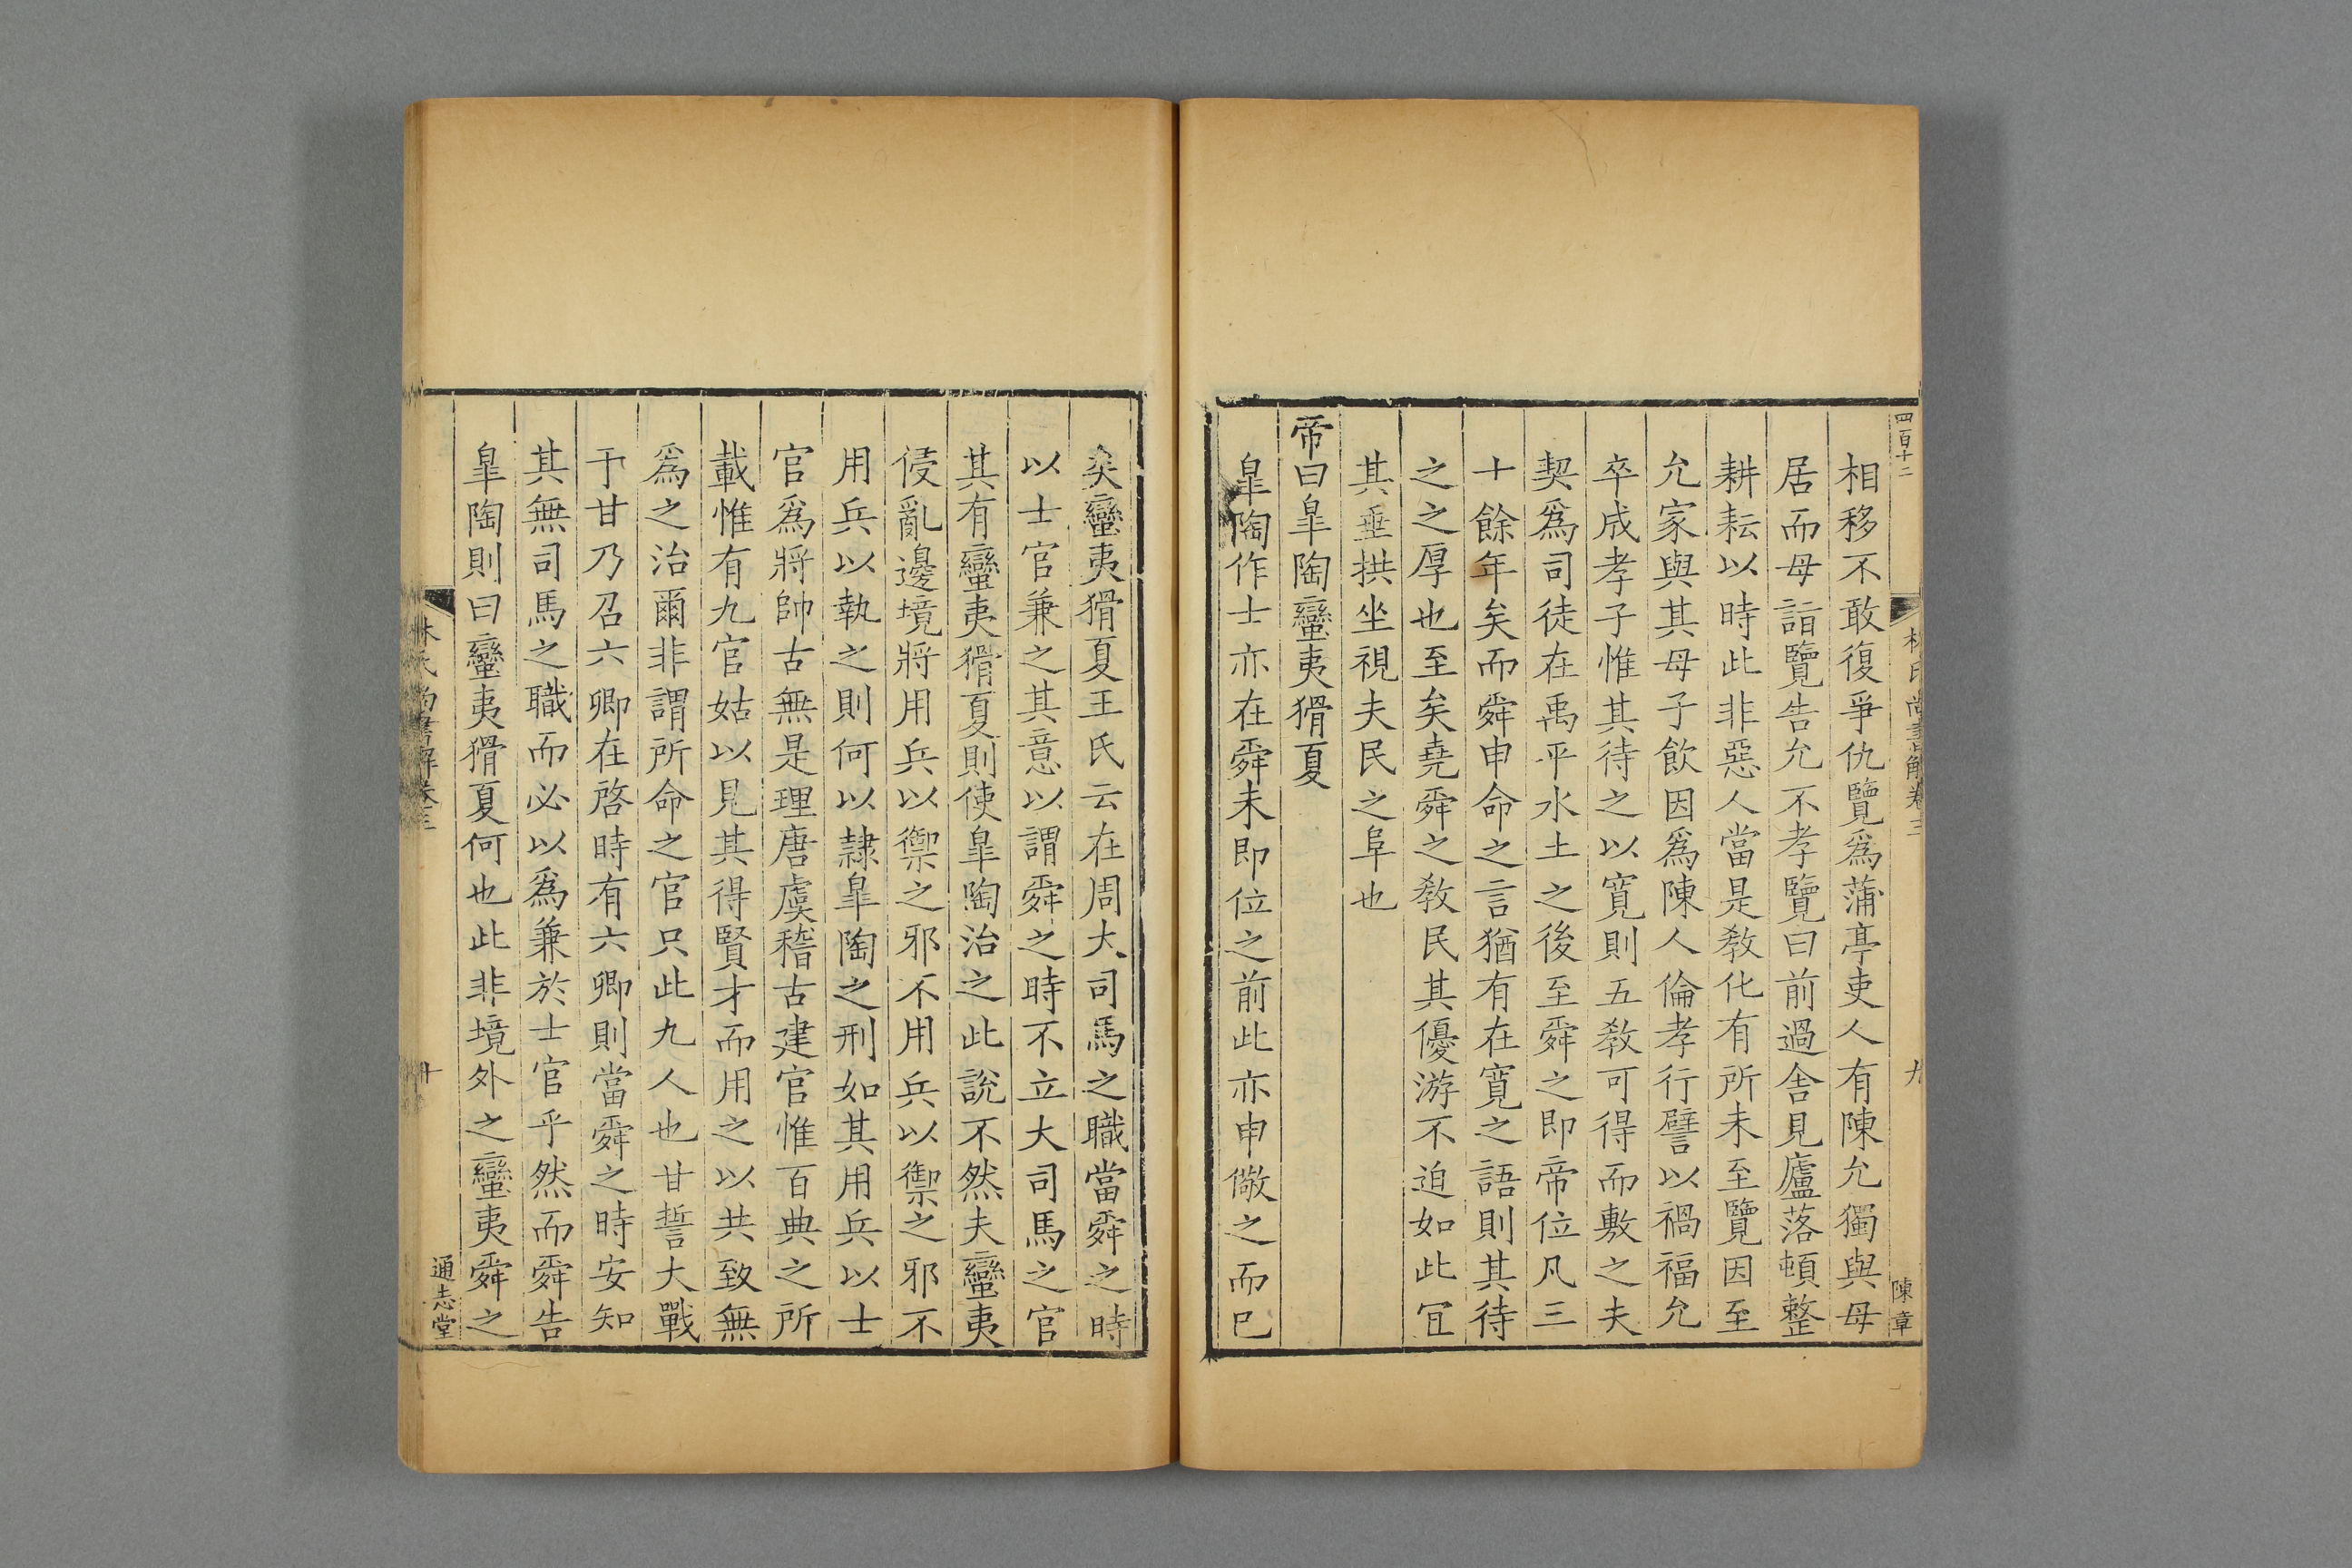 四百十二
林氏尚書解卷三
九
陳章
相移不敢復爭仇覽爲蒲亭吏人有陳允獨與母
居而母詣覽告允不孝覽曰前過舍見廬落頓整
耕耘以時此非惡人當是敎化有所未至覽因至
允家與其母子飲因爲陳人倫孝行譬以禍福允
卒成孝子惟其待之以寬則五敎可得而敷之夫
契爲司徒在禹平水土之後至舜之即帝位凡三
十餘年矣而舜申命之言猶有在寬之語則其待
之之厚也至矣堯舜之敎民其優游不迫如此冝
其垂拱坐視夫民之阜也
帝曰臯陶蠻夷猾夏
臯陶作士亦在舜未即位之前此亦申儆之而巳
矣蠻夷猾夏王氏云在周大司馬之職當舜之時
以士官兼之其意以謂舜之時不立大司馬之官
其有蠻夷猾夏則使臯陶治之此說不然夫蠻夷
侵亂邊境將用兵以禦之邪不用兵以禦之邪不
用兵以執之則何以隷臯陶之刑如其用兵以士
官爲將帥古無是理唐虞稽古建官惟百典之所
載惟有九官姑以見其得賢才而用之以共致無
爲之治爾非謂所命之官只此九人也甘誓大戰
于甘乃召六卿在啓時有六卿則當舜之時安知
其無司馬之職而必以爲兼於士官乎然而舜告
臯陶則曰蠻夷猾夏何也此非境外之蠻夷舜之
林氏尚書解卷三
十
通志堂